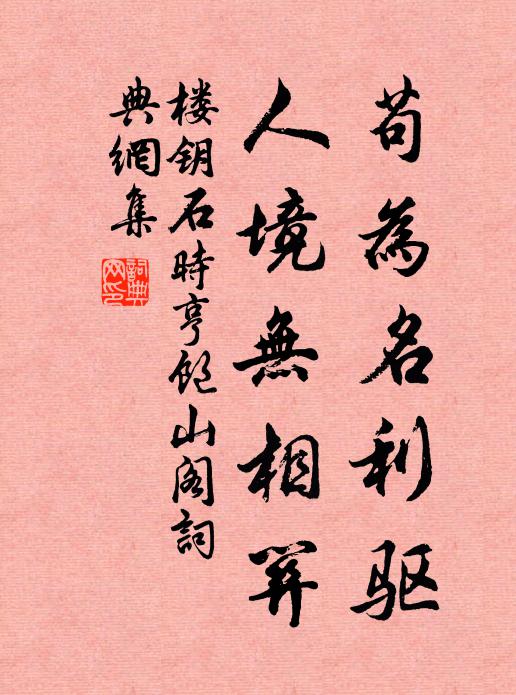 苟為名利驱
人境無相羿
楼钥石時亨飽山阁詞
典網集
詞典網印